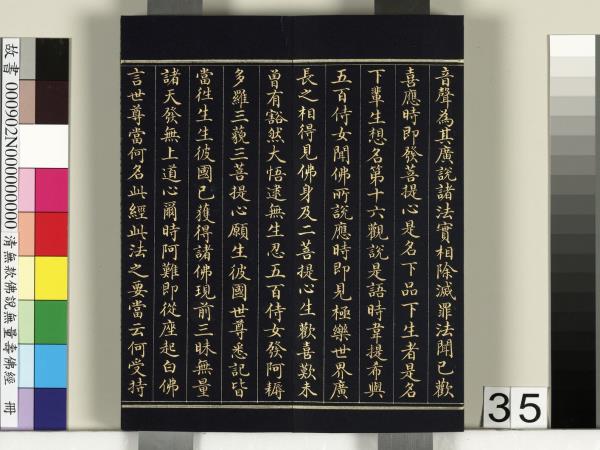 音聲為其廣說諸法實相除滅罪法聞已歡
喜應時即發菩提心是名下品下生者是名
下輩生想名第十六觀說是語時韋提希與
五百侍女聞佛所說應時即見極樂世界廣
長之相得見佛身及二菩提心生歡喜歎未
曾有豁然大悟逮無生忍五百侍女發阿耨
多羅三藐三菩提心願生彼國世尊悉記皆
當往生生彼國已獲得諸佛現前三昧無量
諸天發無上道心爾時阿難即從座起白佛
言世尊當何名此經此法之要當云何受持
故書 000902N000000000 清無款佛說無量壽佛經 冊
35